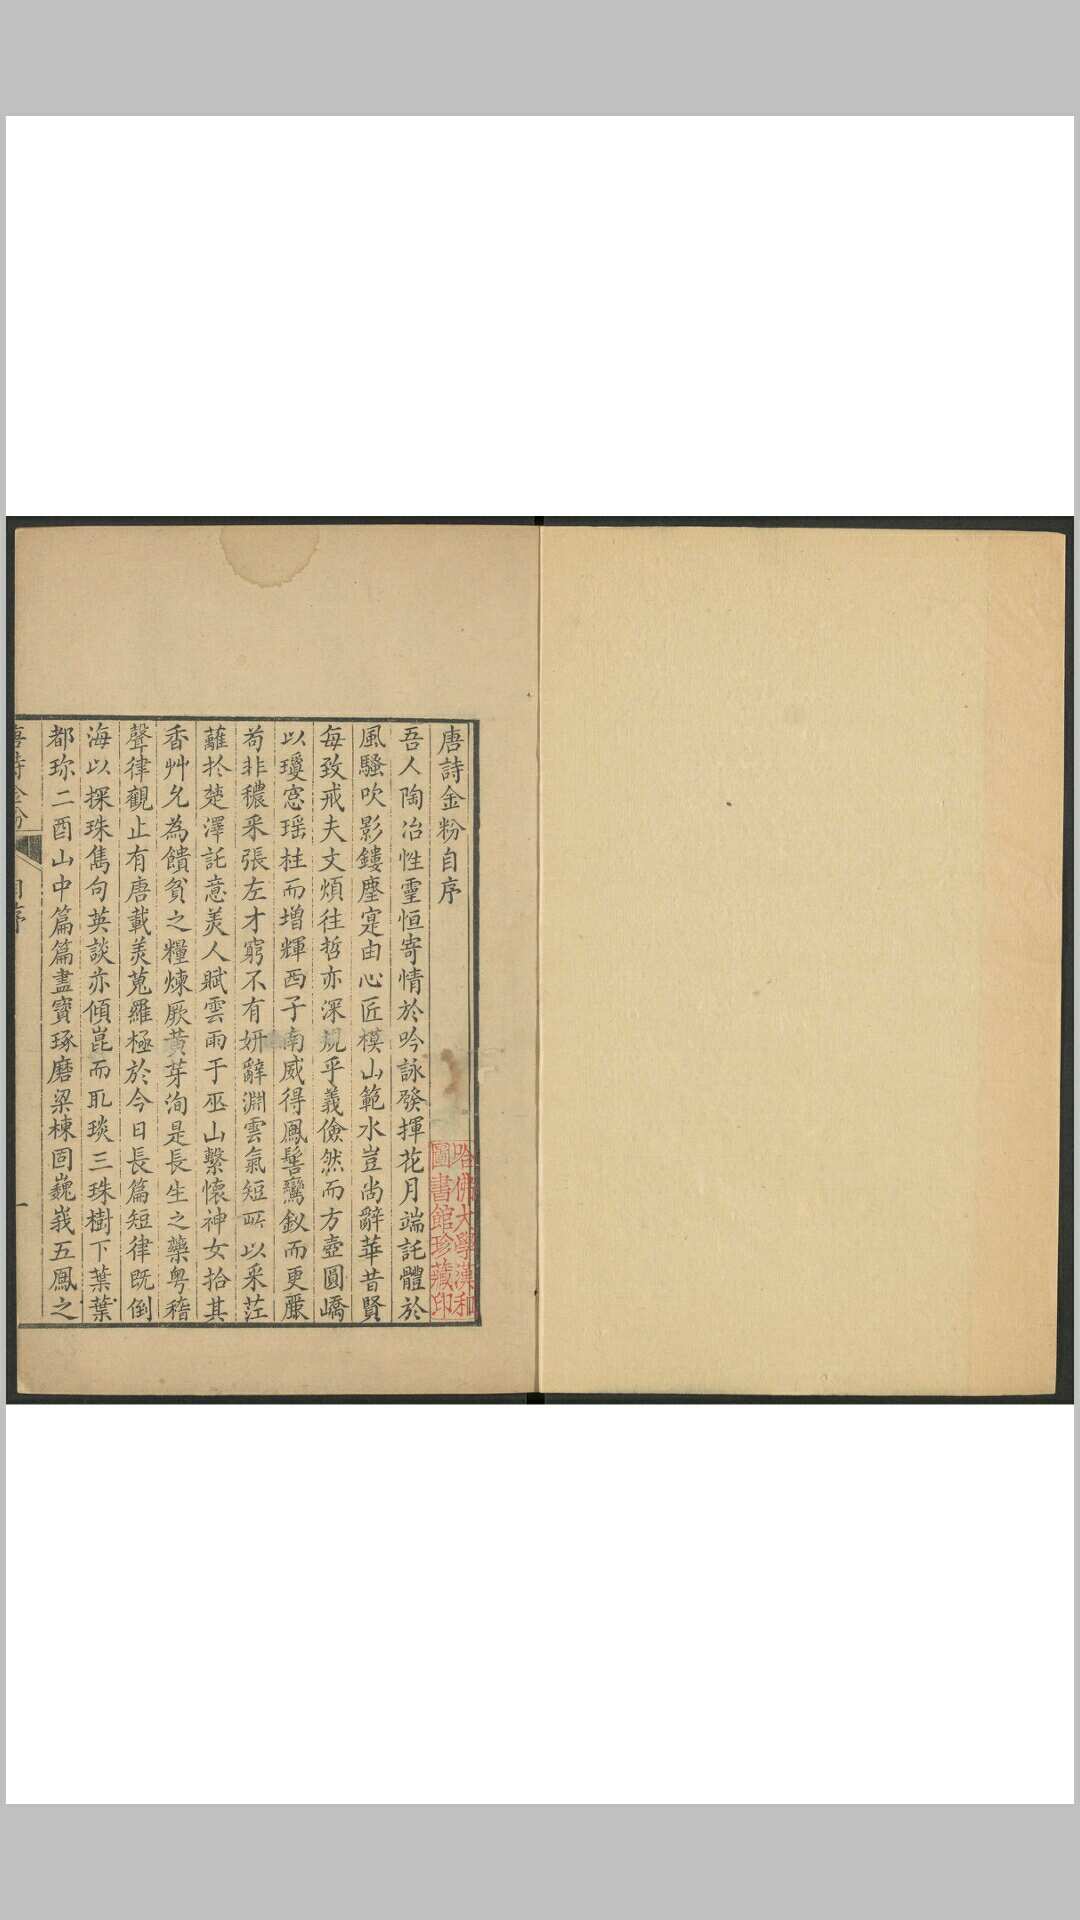 唐詩金粉自序
吾人陶冶性靈恒寄情於吟詠發揮花月端託體於
風騷吹影鏤塵寔由心匠模山範水豈尚辭華昔賢
每致戒夫文煩往哲亦深規乎義儉然而方壺圓嶠
以瓊窓瑶柱而增輝西子南威得鳳髻鸞釵而更麗
苟非穠采張左才窮不有妍辭淵雲氣短所以采茳
蘺於楚澤託意美人賦雲雨于巫山繫懷神女拾其
香艸允為饋貧之糧煉厥黃芽洵是長生之藥粤稽
聲律觀止有唐載美蒐羅極於今日長篇短律既倒
海以探珠雋句英談亦傾崑而取琰三珠樹下葉葉
都珎二酉山中篇篇盡寶琢磨梁棟固巍峩五鳳之
唐詩金粉
自序
一
哈佛大學漢和
圖書館珍藏印